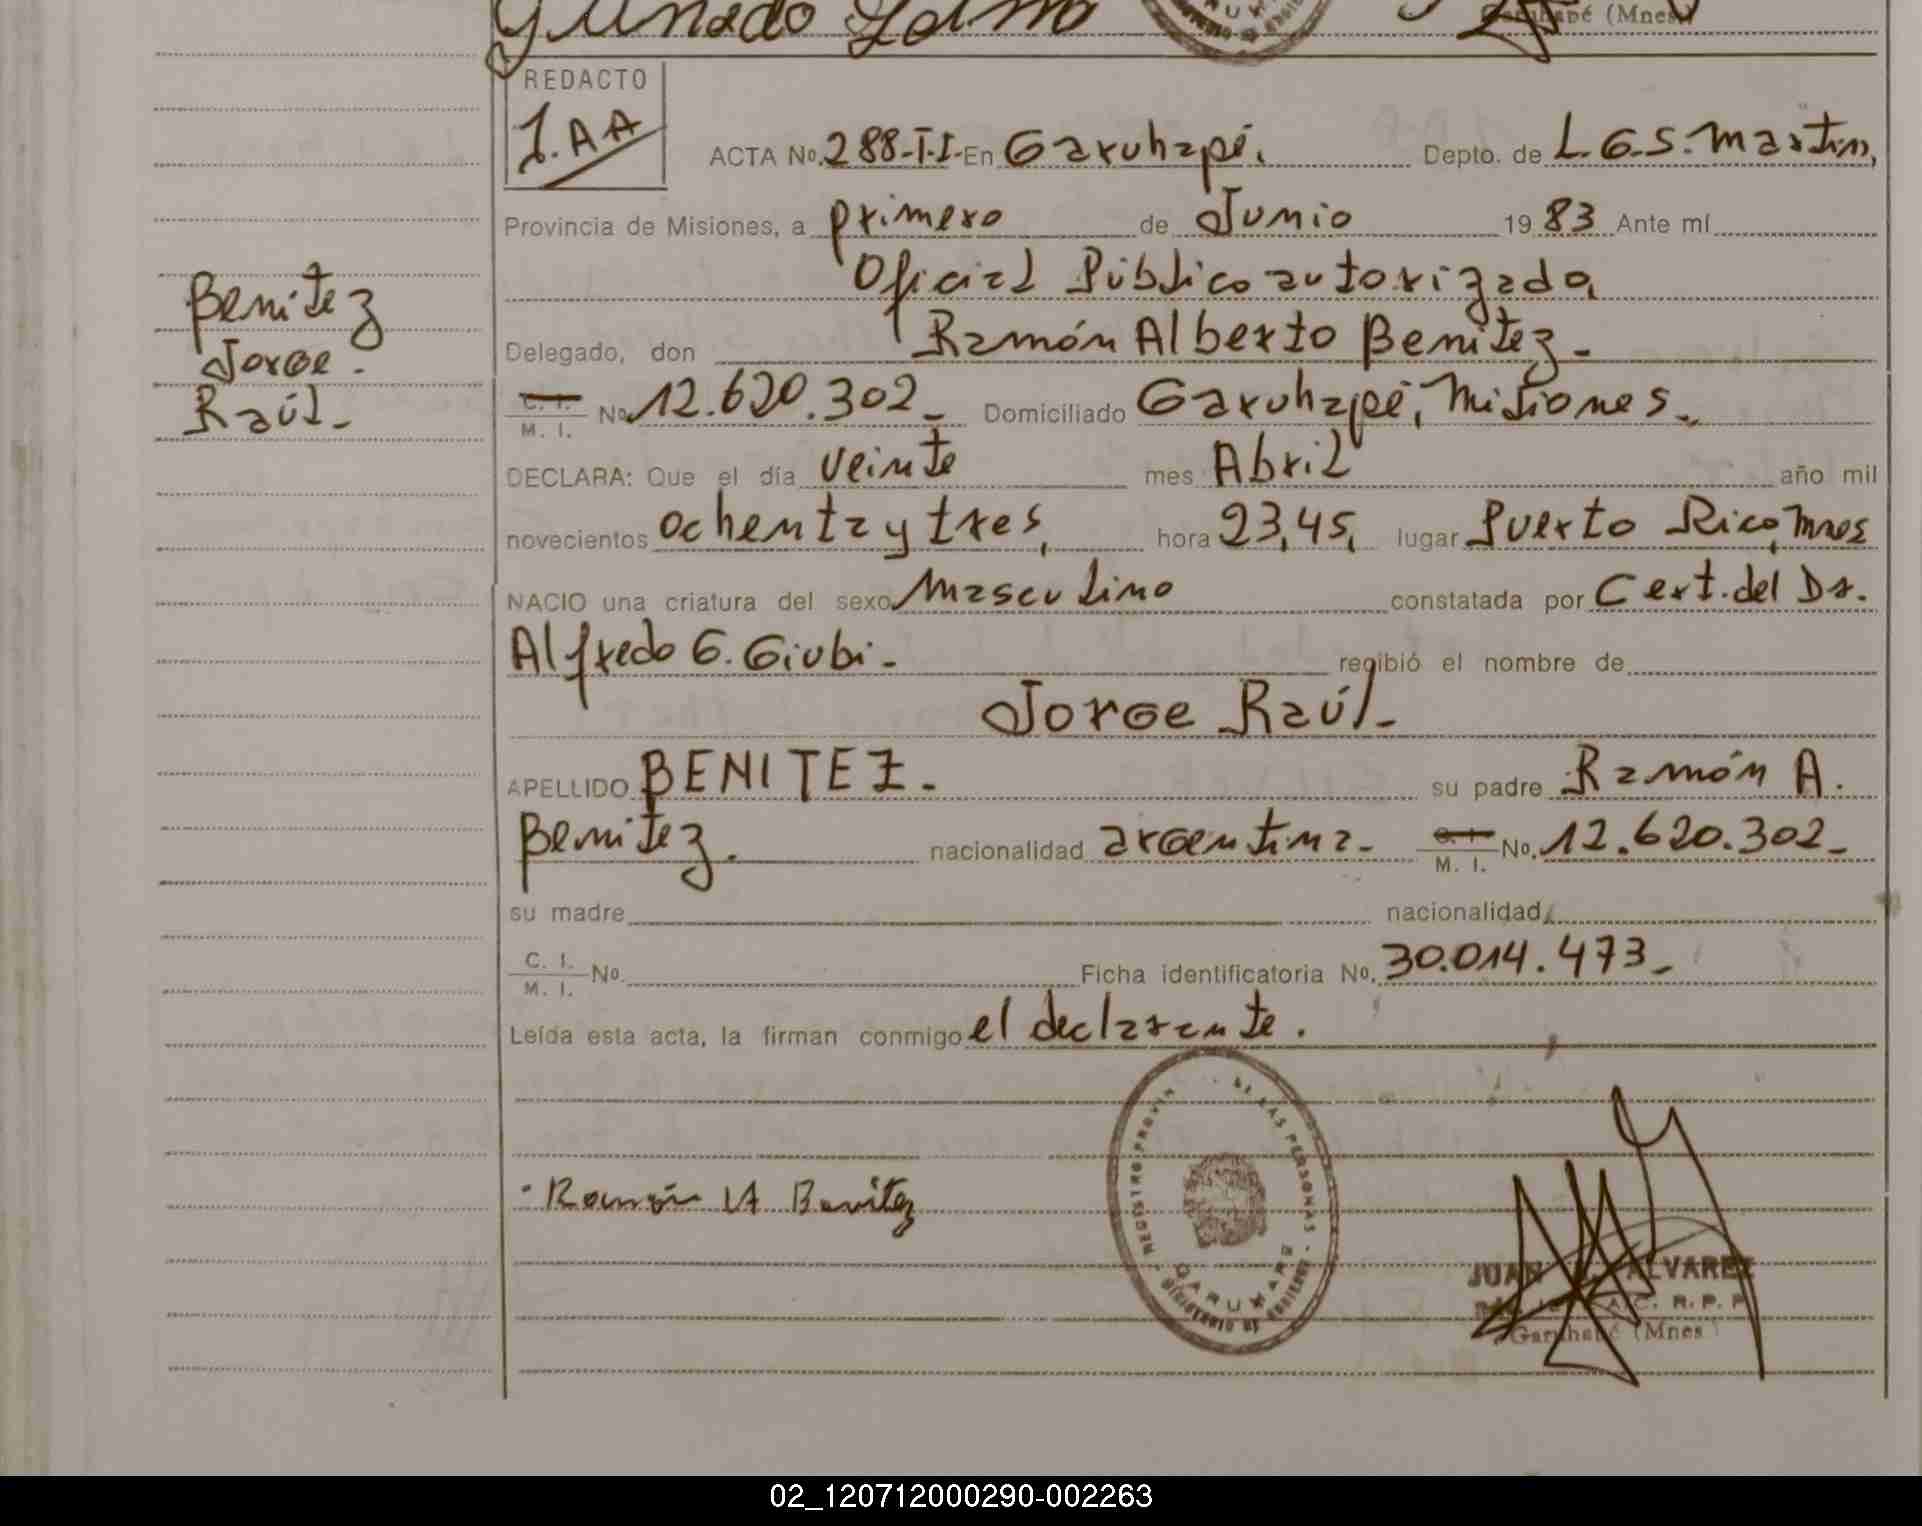 Garuhapé (Mnes)
REDACTO
J.AA
ACTA No. 288-T.I-En Garuhapé. Depto. de L.G.S. Martin,
Provincia de Misiones, a primero de Junio 19 83 Ante mí
Oficial Público autorizado,
Delegado, don Ramón Alberto Benitez.-
C. I.
M. I. No 12.620.302.- Domiciliado Garuhapé, Misiones.-
DECLARA: Que el día veinte mes Abril año mil
novecientos ochenta y tres, hora 23,45, lugar Puerto Rico, Mnes
NACIO una criatura del sexo Masculino constatada por Cert. del Dr.
Alfredo G. Giubi.- recibió el nombre de
Jorge Raúl.-
APELLIDO BENITEZ.- su padre Ramón A.
Benitez. nacionalidad argentina.- C. I.
M. I. No. 12.620.302.-
su madre nacionalidad
C. I.
M. I. No. Ficha identificatoria No. 30.014.473.-
Leída esta acta, la firman conmigo el declarante.
Benitez
Jorge.
Raúl.-
Ramón A Benitez
REGISTRO PROVIN DE LAS PERSONAS
GARUHAPE
JUAN ALVAREZ
R. P. P
Garuhapé (Mnes)
02_120712000290-002263